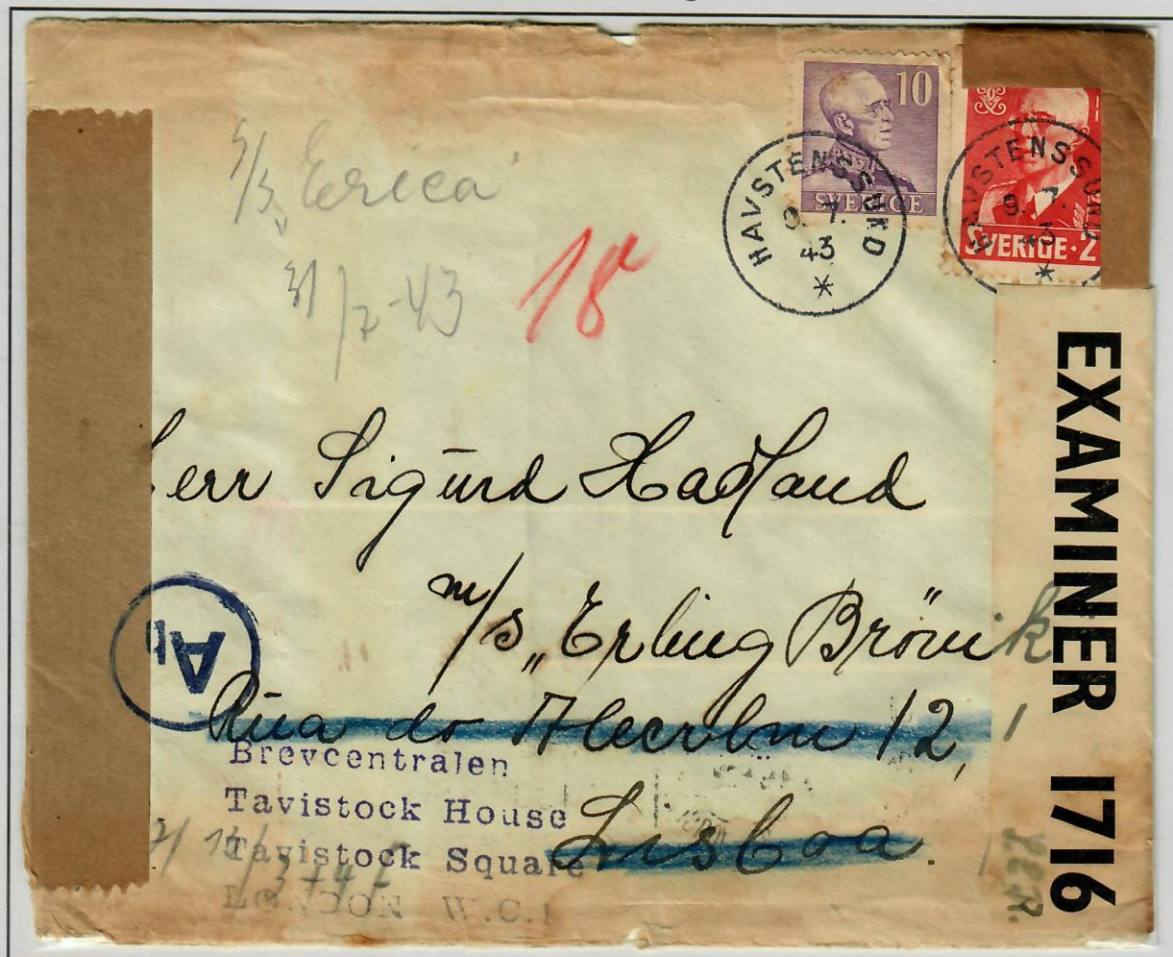 10
SVERIGE
SVERIGE·2
HAVSTENSSUND
9.7.
43
HAVSTENSSUND
9.7.
43
S/S Erica
31/7-43
18
EXAMINER 1716
Herr Sigurd Hadland
m/s „Erling Brövik
Rua do Alecrim 12, 1
Lisboa.
Brevcentralen
Tavistock House
Tavistock Square
LONDON W.C.1